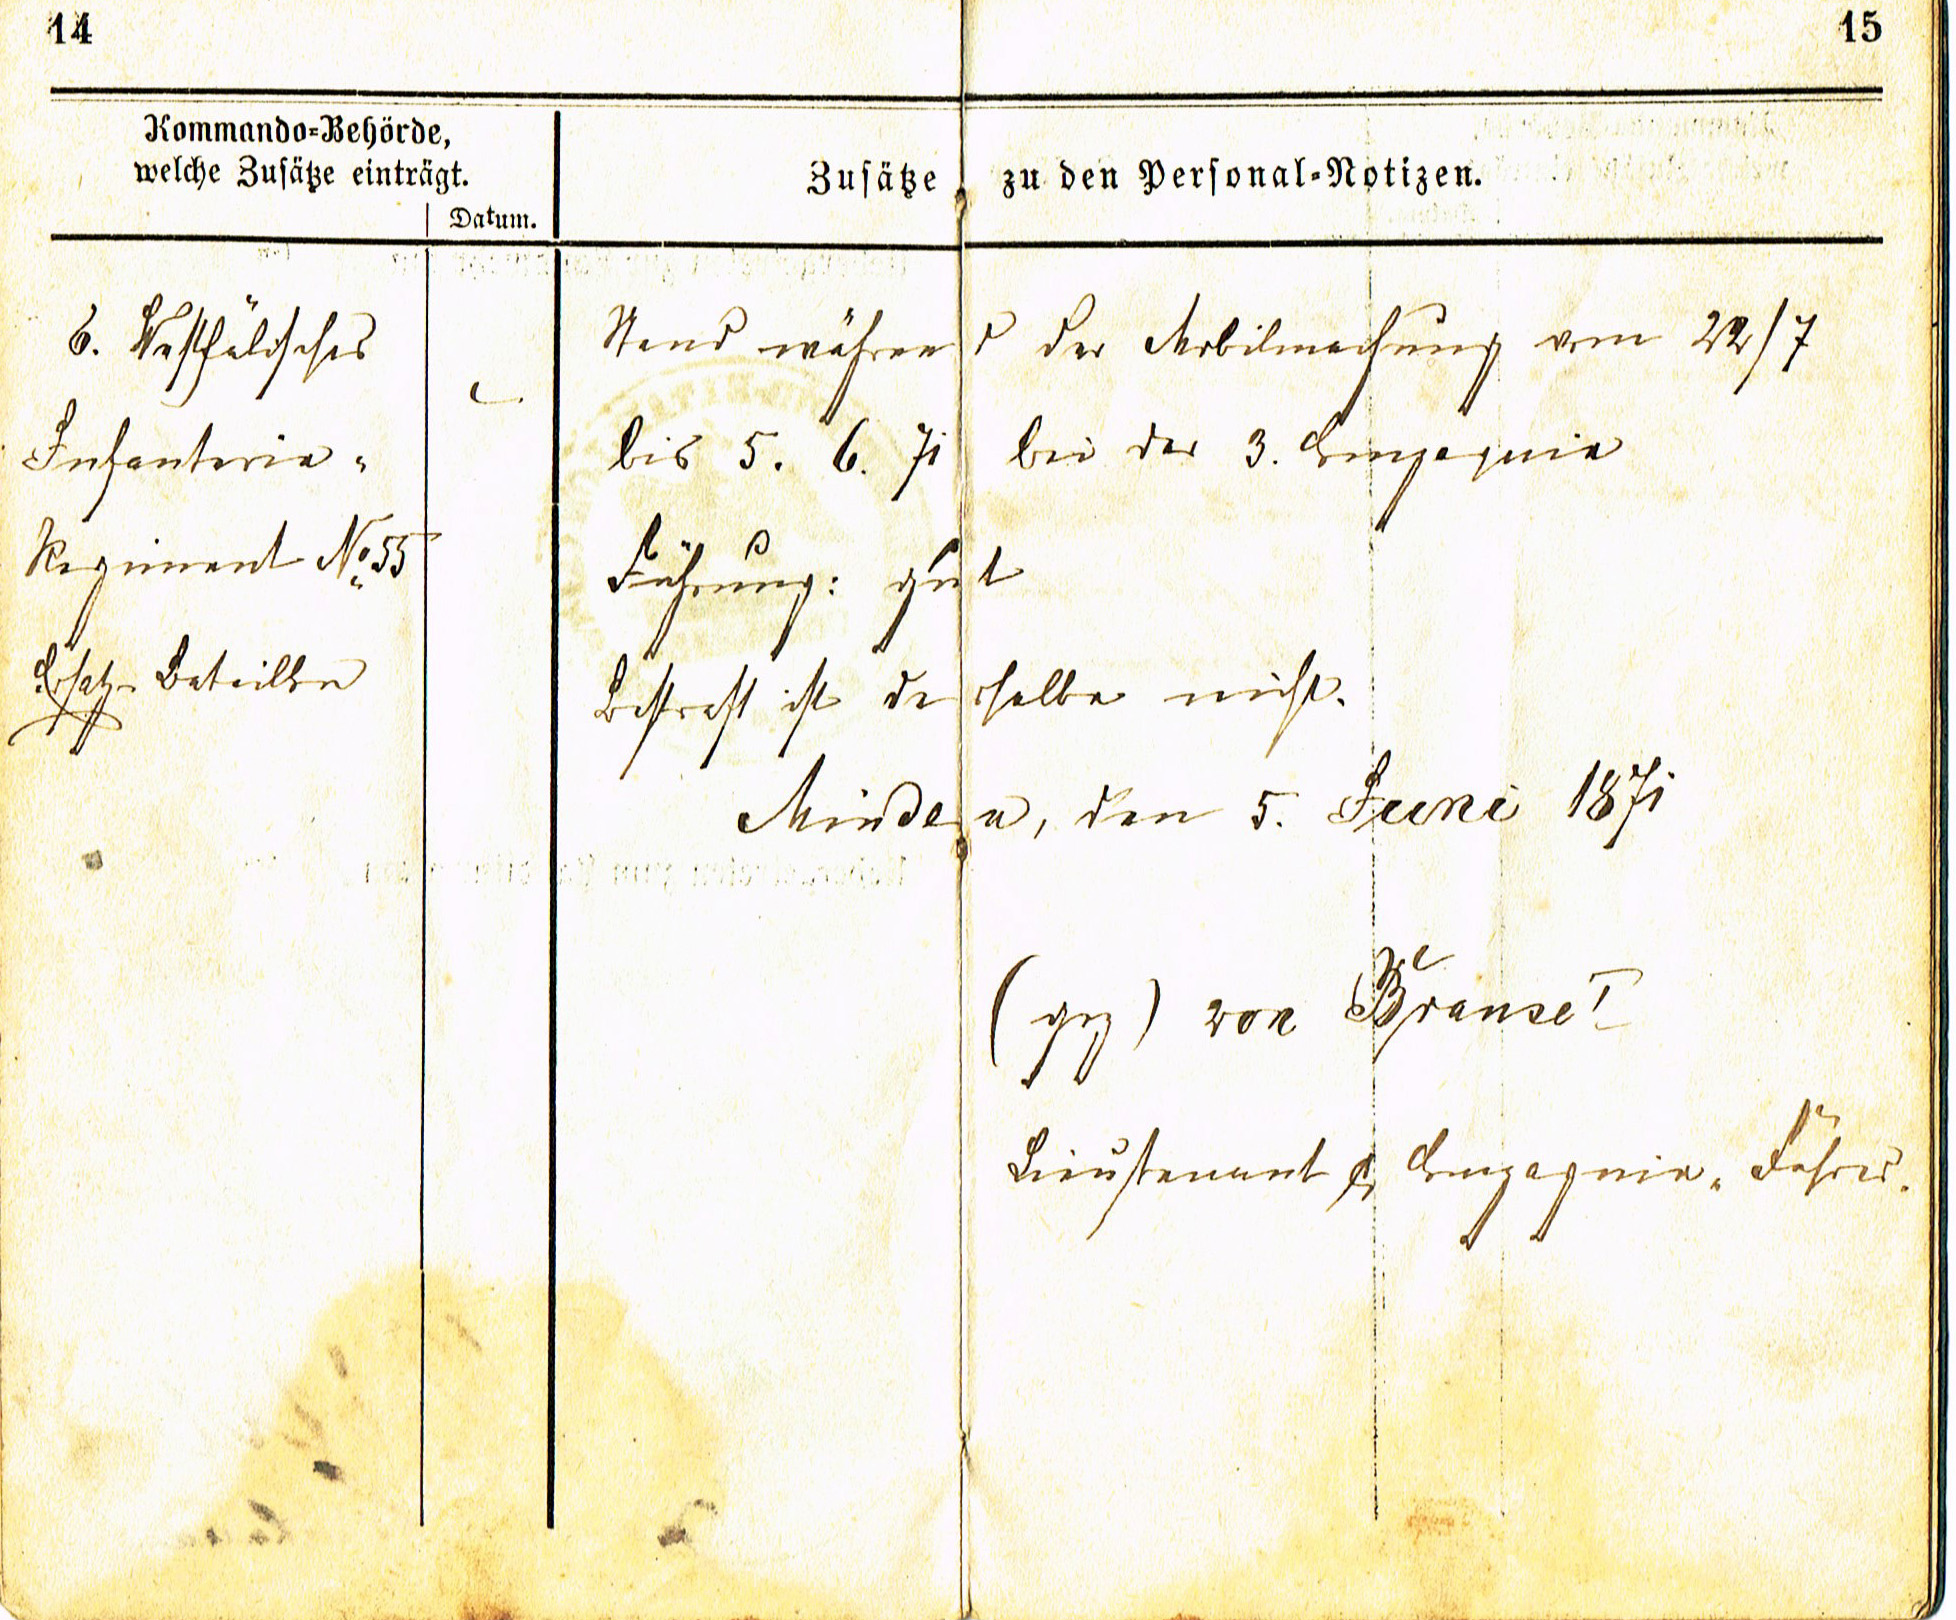 14
15
Kommando-Behörde,
welche Zusätze einträgt.
Datum.
Zusätze zu den Personal-Notizen.
6. Westfälisches
Infanterie-
Regiment No. 55
Ersatz-Bataillon
Stand während der Mobilmachung vom 22/7
bis 5. 6. 71 bei der 3. Compagnie
Führung: gut
Bestraft ist derselbe nicht.
Minden, den 5. Juni 1871
(gez) von I
Lieutenant & Compagnie-Führer.